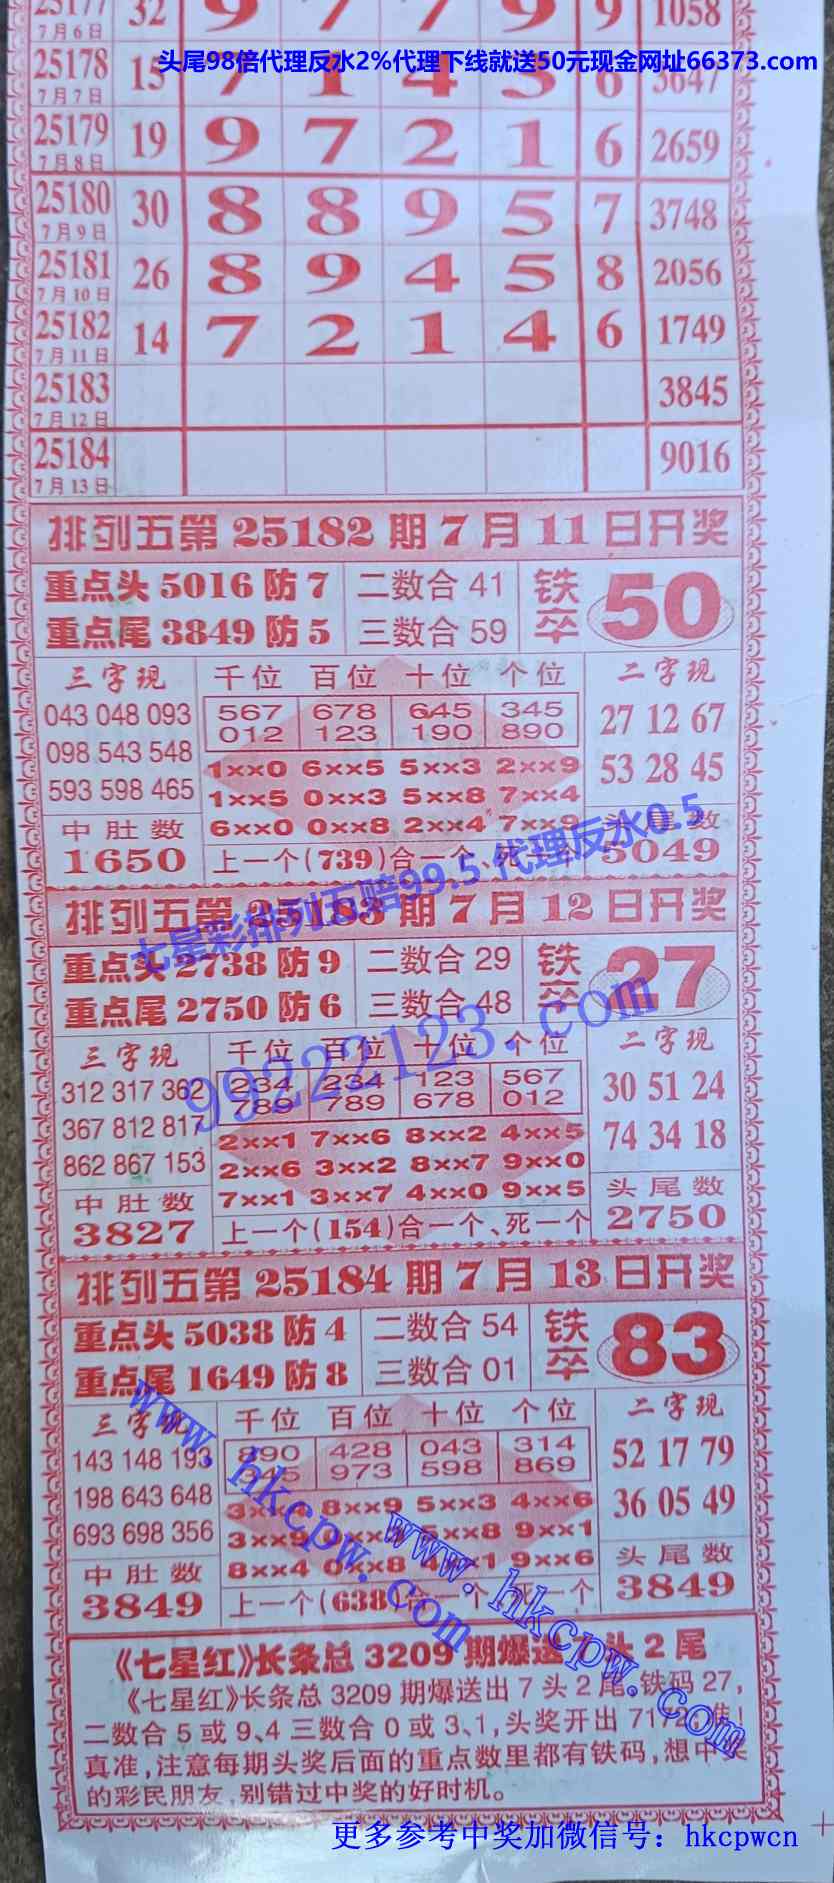 25177 32 9 7 7 9 9 1058
7月6日
头尾98倍代理反水2%代理下线就送50元现金网址66373.com
25178 15 7 1 4 3 6 3647
7月7日
25179 19 9 7 2 1 6 2659
7月8日
25180 30 8 8 9 5 7 3748
7月9日
25181 26 8 9 4 5 8 2056
7月10日
25182 14 7 2 1 4 6 1749
7月11日
25183 3845
7月12日
25184 9016
7月13日
排列五第25182期7月11日开奖
重点头5016防7 二数合41 铁卒 50
重点尾3849防5 三数合59
三字现 千位 百位 十位 个位 二字现
043 048 093 567 678 645 345 27 12 67
098 543 548 012 123 190 890 53 28 45
593 598 465 1××0 6××5 5××3 2××9
1××5 0××3 5××8 7××4
中肚数 6××0 0××8 2××4 7××9 头尾数
1650 上一个(739)合一个、死一个 5049
七星彩排列五赔99.5 代理反水0.5
排列五第25183期7月12日开奖
重点头2738防9 二数合29 铁卒 27
重点尾2750防6 三数合48
99222123.com
三字现 千位 百位 十位 个位 二字现
312 317 362 234 234 123 567 30 51 24
367 812 817 789 789 678 012 74 34 18
862 867 153 2××1 7××6 8××2 4××5
2××6 3××2 8××7 9××0
中肚数 7××1 3××7 4××0 9××5 头尾数
3827 上一个(154)合一个、死一个 2750
排列五第25184期7月13日开奖
重点头5038防4 二数合54 铁卒 83
重点尾1649防8 三数合01
三字现 千位 百位 十位 个位 二字现
143 148 193 890 428 043 314 52 17 79
198 643 648 345 973 598 869 36 05 49
693 698 356 8××9 5××3 4××6
5××8 9××1
中肚数 8××4 0××8 9××6 头尾数
3849 上一个(638)合一个、死一个 3849
www.hkcpw.com
www.hkcpw.com
《七星红》长条总3209期爆送7头2尾
《七星红》长条总3209期爆送出7头2尾,铁码27,
二数合5或9、4三数合0或3、1,头奖开出7172,准!
真准,注意每期头奖后面的重点数里都有铁码,想中奖
的彩民朋友,别错过中奖的好时机。
更多参考中奖加微信号：hkcpwcn